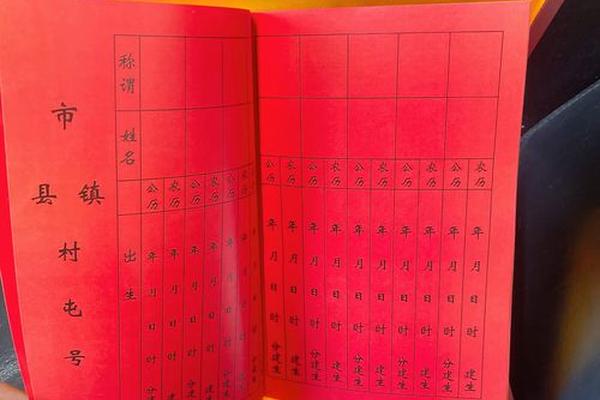 市
县 镇
村
屯
号
称谓
姓名
出生
公历 年 月 日 时 分建生
农历 年 月 日 时 建生
公历 年 月 日 时 分建生
农历 年 月 日 时 建生
公历 年 月 日 时 分建生
公历 年 月 日 时 分建生
农历 年 月 日 时 建生
公历 年 月 日 时 分建生
农历 年 月 日 时 建生
公历 年 月 日 时 分建生
农历 年 月 日 时 建生
公历 年 月 日 时 分建生
农历 年 月 日 时 建生
公历 年 月 日 时 分建生
农历 年 月 日 时 建生